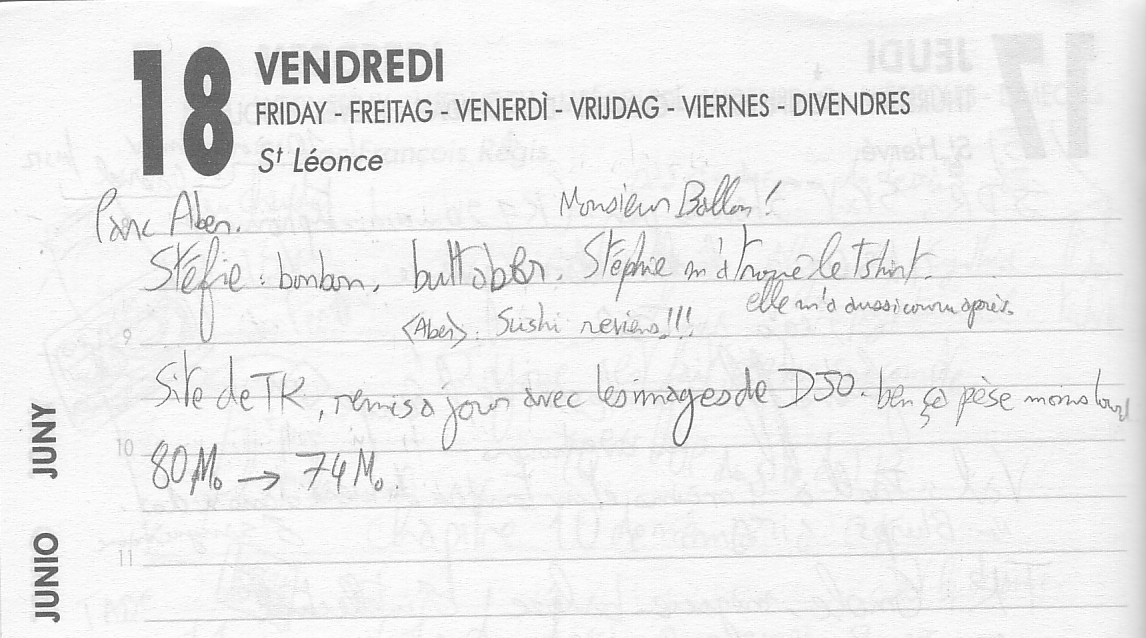 18 VENDREDI
FRIDAY - FREITAG - VENERDÌ - VRIJDAG - VIERNES - DIVENDRES
St Léonce
Parc Aber. Monsieur Ballon!
Stéfie : bonbon, Stéphie m'a trouvé le tshirt.
elle m'a aussi couru après.
<Aber>. Sushi reviens!!!
9
Site de TK, remis à jour avec les images de D50. ben ça pèse moins lourd
10
80Mo → 74Mo.
11
JUNIO JUNY